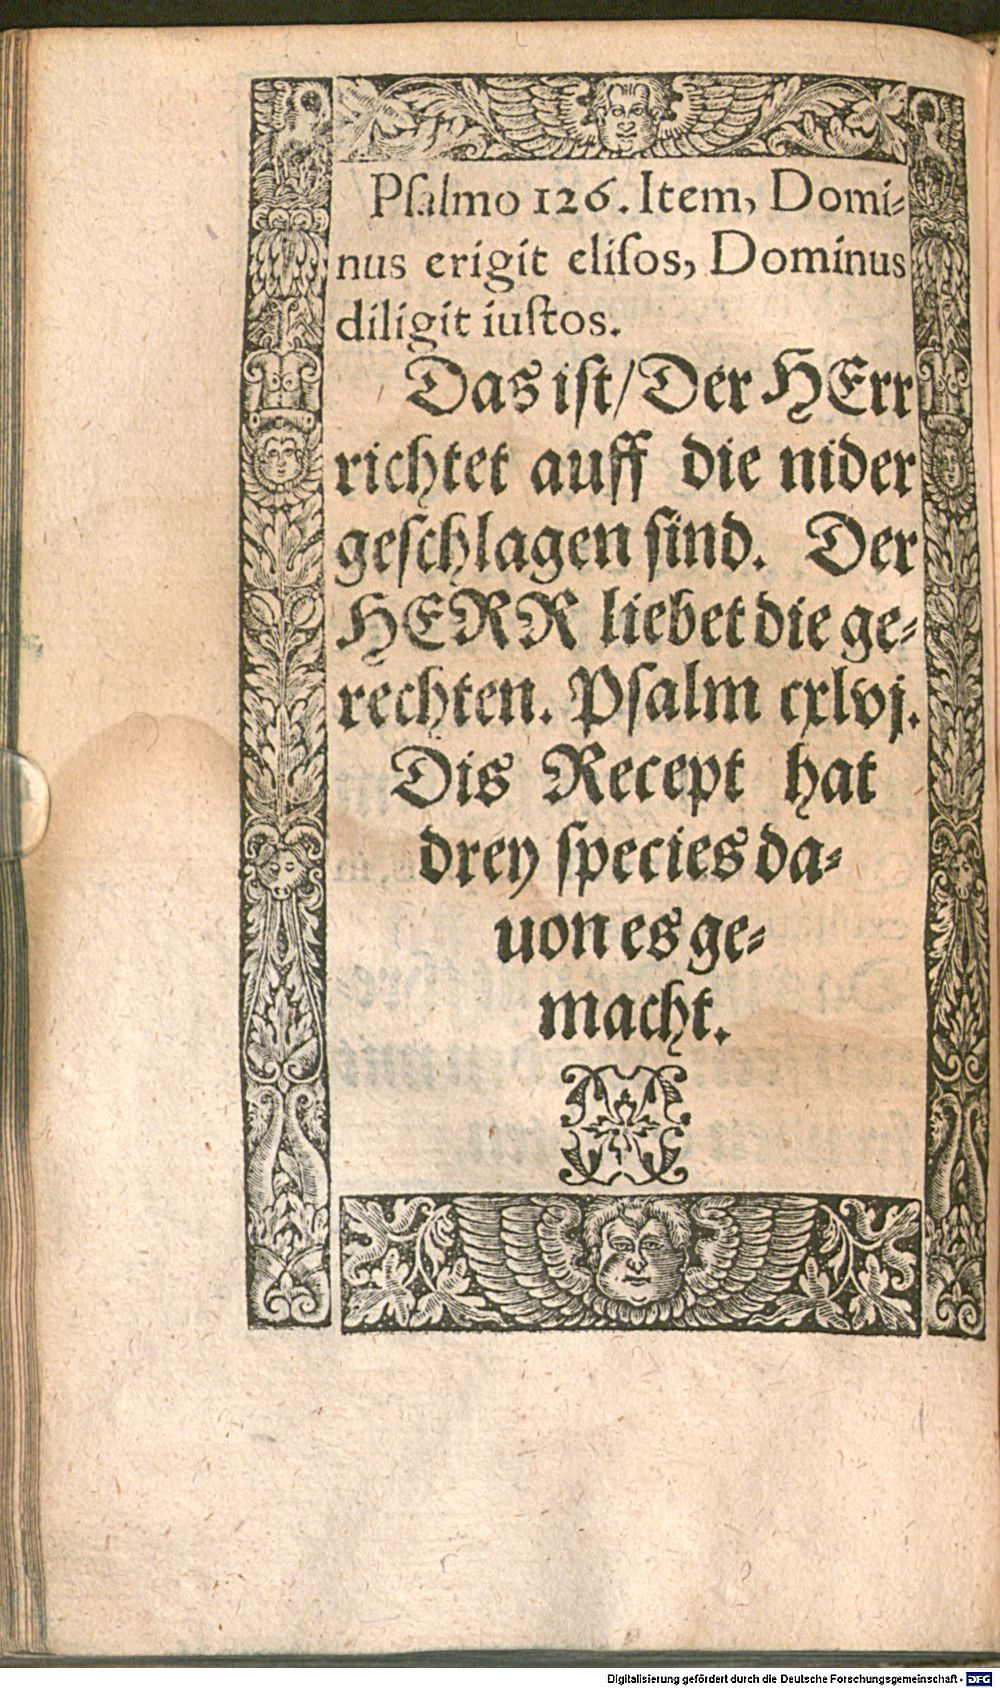 Psalmo 126. Item, Domi⸗
nus erigit eliſos, Dominus
diligit iuſtos.
Das iſt/ Der HErr
richtet auff die nider
geſchlagen ſind. Der
HERR liebet die ge⸗
rechten. Pſalm cxlvj.
Dis Recept hat
drey ſpecies da⸗
uon es ge⸗
macht.
Digitalisierung gefördert durch die Deutsche Forschungsgemeinschaft - DFG